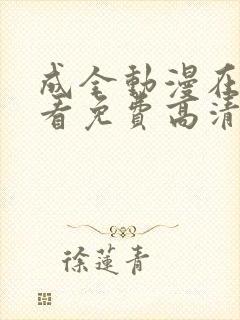 成全動漫在
看免費高清
徐蓮青